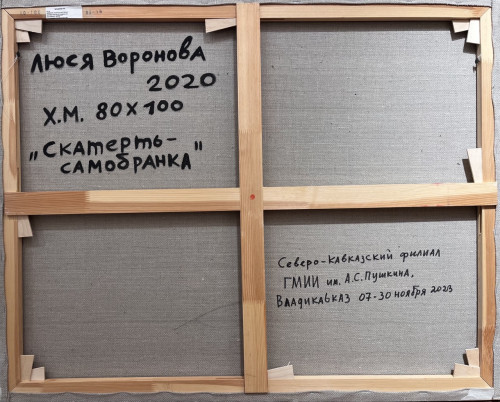 Люся Воронова
2020
Х.М. 80 х 100
„Скатерть-
самобранка"
Северо-Кавказский филиал
ГМИИ им. А.С. Пушкина,
Владикавказ 07-30 ноября 2023